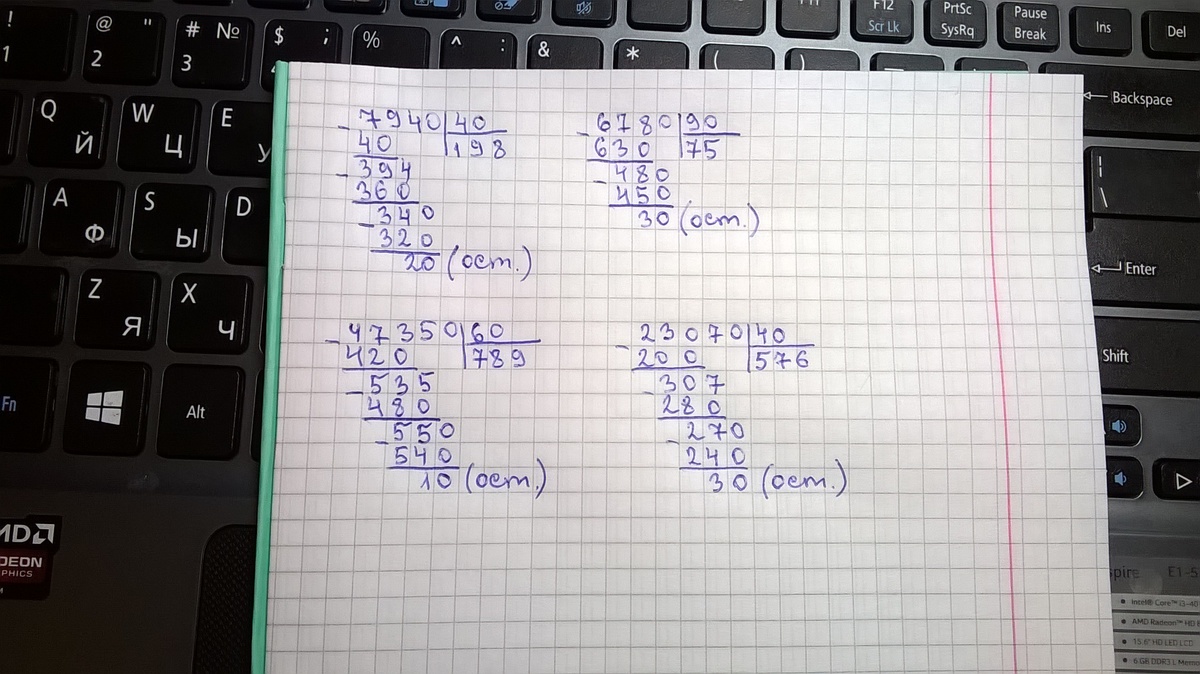 ! 1
@ " 2
# № 3
$ ;
%
^ :
&
*
(
)
F12 Scr Lk
PrtSc SysRq
Pause Break
Ins
Del
Q Й
W Ц
E У
Backspace
A Ф
S Ы
D
| \
Enter
Z Я
X Ч
Shift
Fn
Alt
AMD
RADEON
GRAPHICS
7940 40
40 198
394
360
340
320
20 (ост.)
6780 90
630 75
480
450
30 (ост.)
47350 60
420 789
535
480
550
540
10 (ост.)
23070 40
200 576
307
280
270
240
30 (ост.)
spire E1-5
Intel® Core™ i3-40
AMD Radeon™ HD 8
15.6" HD LED LCD
6 GB DDR3 L Memo